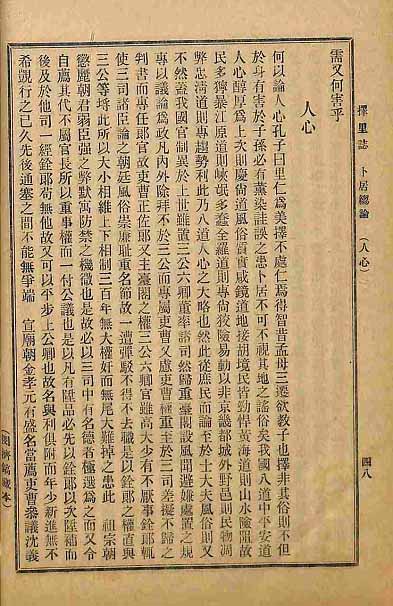 擇里誌 卜居總論 (人心) 四八
需又何害乎
人心
何以論人心孔子曰里仁爲美擇不處仁焉得智昔孟母三遷欲敎子也擇非其俗則不但
於身有害於子孫必有薰染詿誤之患卜居不可不視其地之謠俗矣我國八道中平安道
人心醇厚爲上次則慶尙道風俗質實咸鏡道地接胡境民皆勁悍黃海道則山水險阻故
民多獰暴江原道則峽氓多蠢全羅道則專尙狡險易動以非京畿都城外野邑則民物凋
弊忠淸道則專趨勢利此乃八道人心之大略也然此從庶民而論至於士大夫風俗則又
不然蓋我國官制異於上世雖置三公六卿董率諸司然歸重臺閣設風聞避嫌處置之規
專以議論爲政凡內外除拜不於三公而專屬吏曹又慮吏曹權重至於三司差擬不歸之
判書而專任郞官故吏曹正佐郞又主臺閣之權三公六卿官雖高大少有不厭事銓郞輒
使三司諸臣論之朝廷風俗崇廉恥重名節故一遭彈駁不得不去職是以銓郞之權直與
三公等埒此所以大小相維上下相制三百年無大權奸而無尾大難掉之患此 祖宗朝
懲麗朝君弱臣强之弊默寓防禁之機微也是故必以三司中有名德者極選爲之而又令
自薦其代不屬官長所以重事權而一付公議也是以凡有陞品必先以銓郞以次陞補而
後及於他司一經銓郞苟無他故又可以平步上公卿也故名與利俱附而年少新進無不
希覬行之已久先後通塞之間不能無爭端 宣廟朝金孝元有盛名當薦吏曹參議沈義